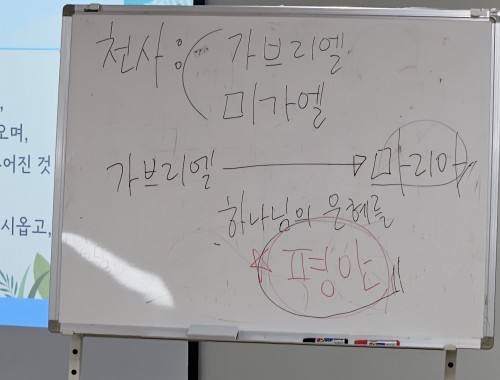 오며,
어진 것
시옵고,
천사 : 가브리엘
미가엘
가브리엘 → 마리아
하나님의 은혜를
평안